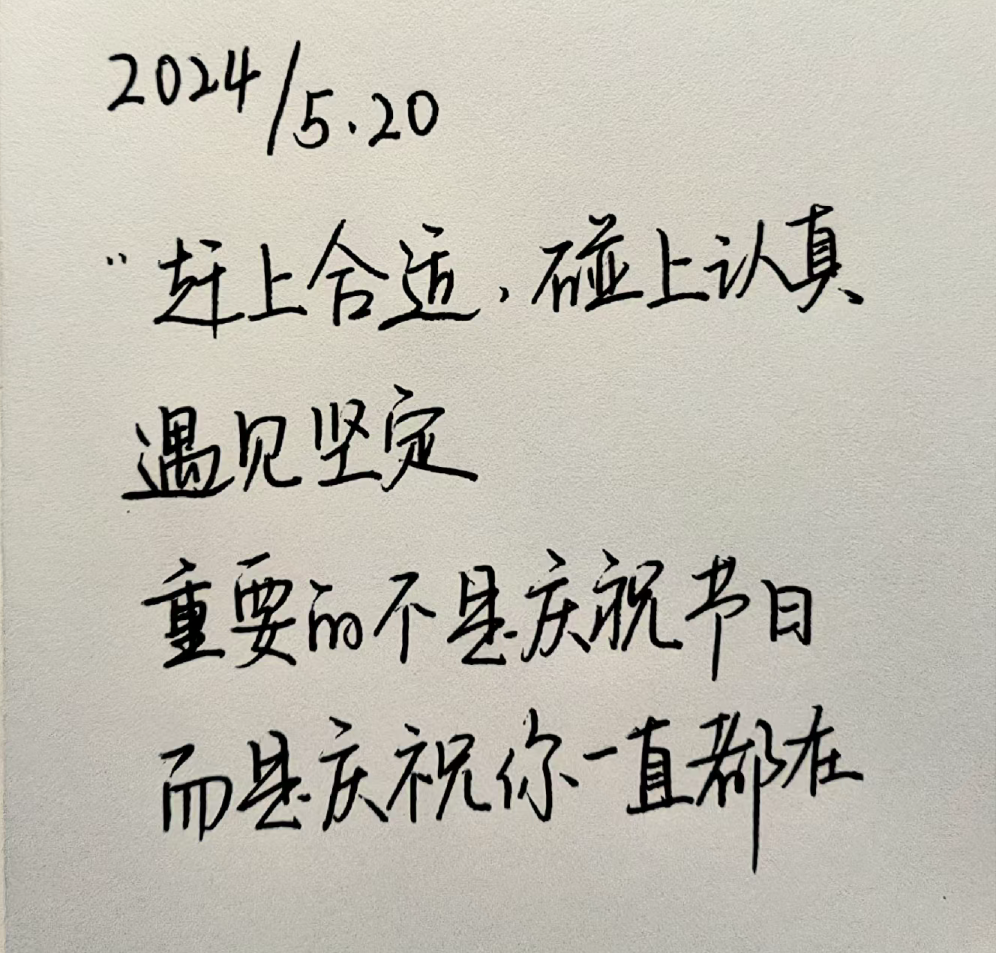 2024/5.20
“赶上合适，碰上认真
遇见坚定
重要的不是庆祝节日
而是庆祝你一直都在